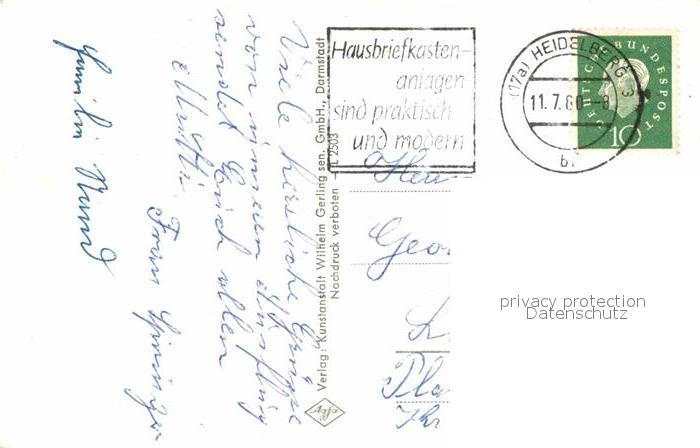 Viele herzliche Grüsse
von unserem Ausflug
sendet Euch allen
Familie Kund
Frau
Verlag: Kunstanstalt Wilhelm Gerling sen. GmbH., Darmstadt
Nachdruck verboten
L 2503
Agfa
Hausbriefkasten-
anlagen
sind praktisch
und modern
(17a) HEIDELBERG 3
11.7.60-8
b
DEUTSCHE BUNDESPOST
10
Geor
privacy protection
Datenschutz